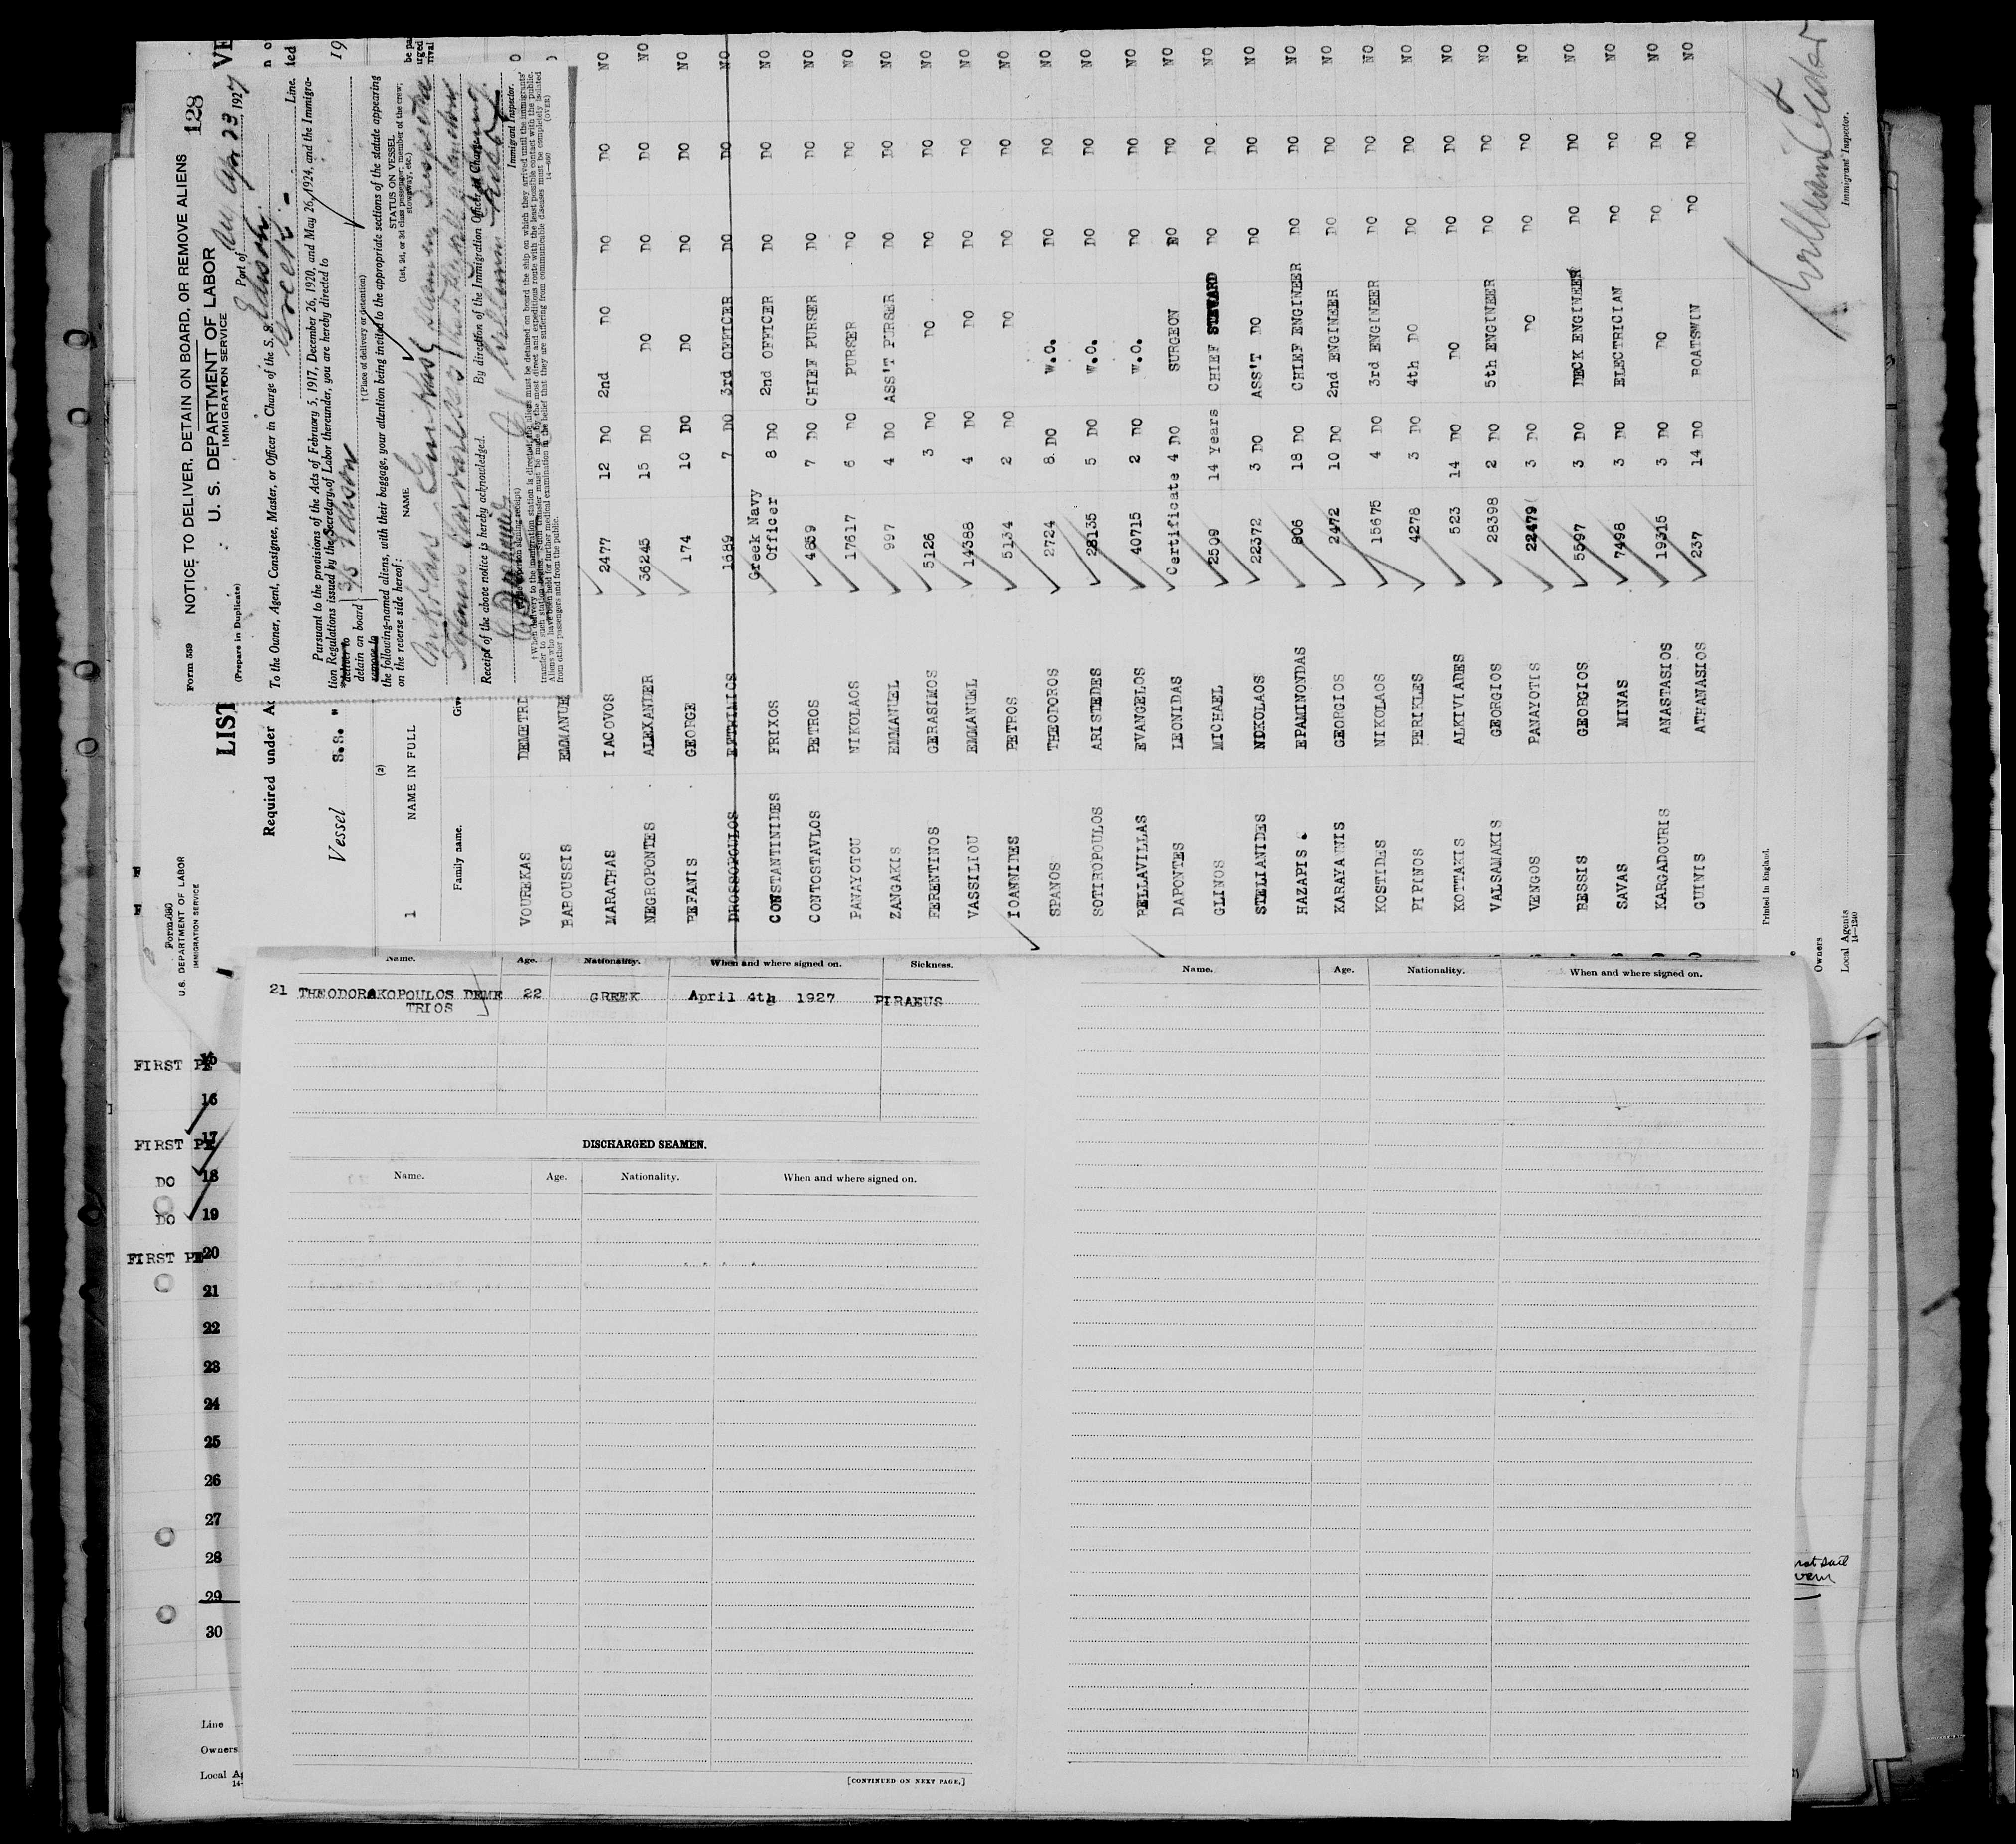 Form 539 NOTICE TO DELIVER, DETAIN ON BOARD, OR REMOVE ALIENS 128
U. S. DEPARTMENT OF LABOR
IMMIGRATION SERVICE
(Prepare in Duplicate)
Port of
Apr 23, 1927
To the Owner, Agent, Consignee, Master, or Officer in Charge of the S. S. Edison
Greek Line.
Pursuant to the provisions of the Acts of February 5, 1917, December 26, 1920, and May 26, 1924, and the Immigra-
tion Regulations issued by the Secretary of Labor thereunder, you are hereby directed to
deliver to
detain on board S/S Edison
remove to
† (Place of delivery or detention)
the following-named aliens, with their baggage, your attention being invited to the appropriate sections of the statute appearing
on the reverse side hereof:
NAME
STATUS ON VESSEL
(1st, 2d, or 3d class passenger; member of the crew;
stowaway, etc.)
Receipt of the above notice is hereby acknowledged.
By direction of the Immigration Officer in Charge,
William
Immigrant Inspector.
† When delivery to the immigration station is directed, the alien must be detained on board the ship on which they arrived until the immigrants'
transfer to such station begins. Such transfer must be made by the most direct and expeditious route with the least possible contact with the public.
Aliens who have been held for further medical examination in the belief that they are suffering from communicable diseases must be completely isolated
from other passengers and from the public.
14—660 (OVER)
LIST
Required under
Vessel S.S. "
19
(2)
1 NAME IN FULL
Family name.
VOUREKAS DEMETRI
BABOUSSIS EMMANUE
MARATHAS IACOVOS 2477 12 DO 2nd DO DO DO NO
NEGROPONTES ALEXANDER 36245 15 DO DO DO DO NO
BEFANIS GEORGE 174 10 DO DO DO DO NO
DROSSOPOULOS EFTHIMIOS 1889 7 DO 3rd OFFICER DO DO NO
CONSTANTINIDES FRIXOS Greek Navy Officer 8 DO 2nd OFFICER DO DO NO
CONTOSTAVLOS PETROS 4859 7 DO CHIEF PURSER DO DO NO
PANAYOTOU NIKOLAOS 17617 6 DO PURSER DO DO NO
ZANGAKIS EMMANUEL 997 4 DO ASS'T PURSER DO DO NO
FERENTINOS GERASIMOS 5126 3 DO DO DO DO NO
VASSILIOU EMMANUEL 14388 4 DO DO DO DO NO
IOANNIDES PETROS 5134 2 DO DO DO DO NO
SPANOS THEODOROS 2724 8 DO W.O. DO DO NO
SOTIROPOULOS ARISTEDES 28135 5 DO W.O. DO DO NO
BELLAVILLAS EVANGELOS 40715 2 DO W.O. DO DO NO
DAPONTES LEONIDAS Certificate 4 DO SURGEON DO DO NO
GLINOS MICHAEL 2509 14 Years CHIEF STEWARD DO DO NO
STELIANIDES NIKOLAOS 22372 3 DO ASS'T DO DO DO NO
HAZAPIS. EPAMINONDAS 806 18 DO CHIEF ENGINEER DO DO NO
KARAYANNIS GEORGIOS 2472 10 DO 2nd ENGINEER DO DO NO
KOSTIDES NIKOLAOS 15675 4 DO 3rd ENGINEER DO DO NO
PIPINOS PERIKLES 4278 3 DO 4th DO DO DO NO
KOTTAKIS ALKIVIADES 523 14 DO DO DO DO NO
VALSAMAKIS GEORGIOS 28398 2 DO 5th ENGINEER DO DO NO
VENGOS PANAYOTIS 22479 3 DO DO DO DO NO
BESSIS GEORGIOS 5597 3 DO DECK ENGINEER DO DO NO
SAVAS MINAS 7498 3 DO ELECTRICIAN DO DO NO
KARGADOURIS ANASTASIOS 19315 3 DO DO DO DO NO
GUINIS ATHANASIOS 237 14 DO BOATSWIN DO DO NO
Printed in England.
Owners
Local Agents
14—1240
Immigrant Inspector.
Form 680
U.S. DEPARTMENT OF LABOR
IMMIGRATION SERVICE
Name. Age. Nationality. When and where signed on. Sickness.
21 THEODORAKOPOULOS DEME 22 GREEK April 4th 1927 PIRAEUS
TRIOS
DISCHARGED SEAMEN.
Name. Age. Nationality. When and where signed on.
[CONTINUED ON NEXT PAGE.]
Name. Age. Nationality. When and where signed on.
FIRST 15
16
FIRST 17
DO 18
DO 19
FIRST 20
21
22
23
24
25
26
27
28
29
30
Line
Owners
Local